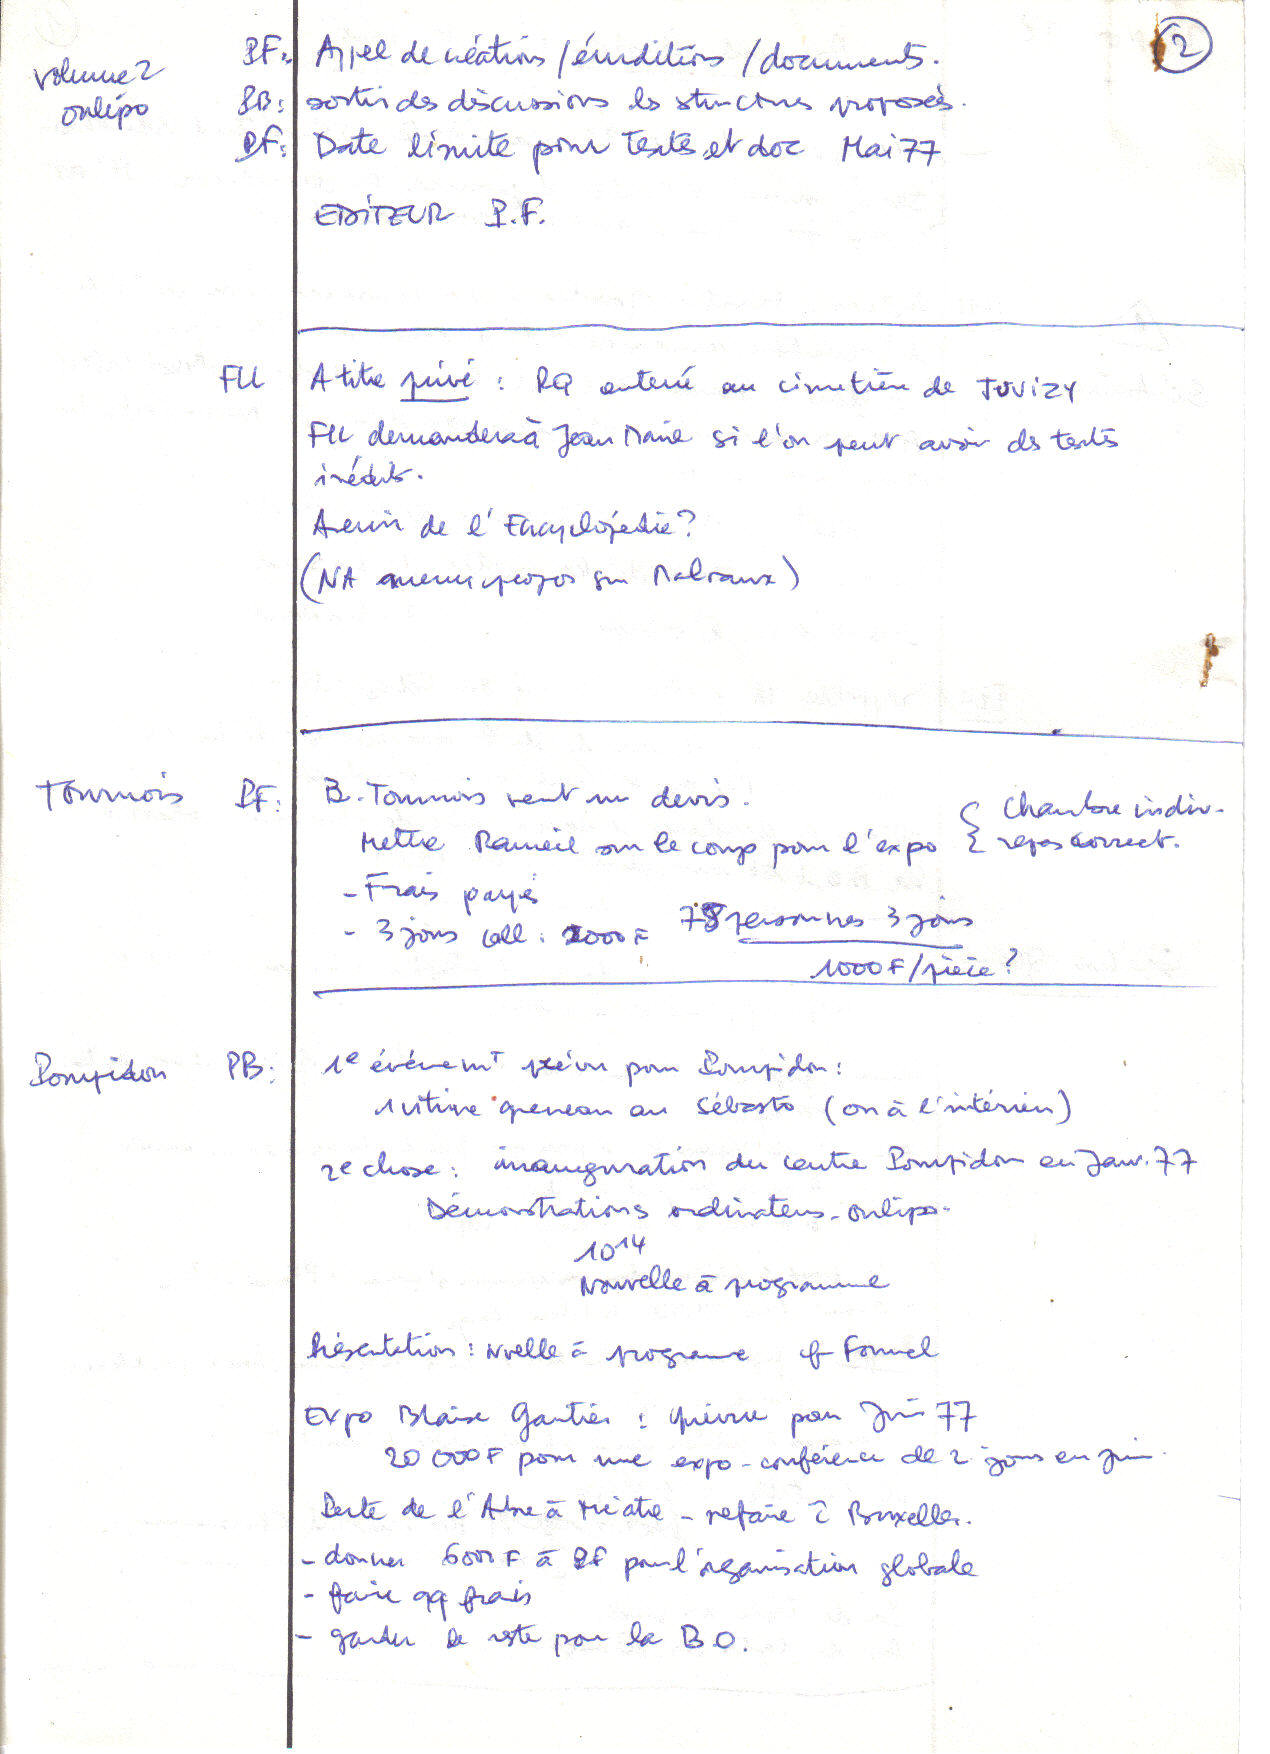 2
volume 2 oulipo
PF: Appel de créations / éruditions / documents.
PB: sortir des discussions les structures proposés.
PF: Date limite pour textes et doc Mai 77
EDITEUR P.F.
FLL A titre privé : RQ enterré au cimetière de JUVIZY
FLL demandera à Jean Marie si l'on peut avoir des textes
inédits.
Avenir de l'Encyclopédie?
(NA propos sur Malraux)
Tournois PF: B. Tournois veut un devis.
Mettre sur le coup pour l'expo { Chambre indiv.
repas correct.
- Frais payés
- 3 jours coll : 2000 F 78 personnes 3 jours
1000 F/pièce?
Pompidou PB: 1e événemt prévu pour Pompidou:
1 vitrine Queneau au Sébasto (ou à l'intérieur)
2e chose: inauguration du centre Pompidou en Janv. 77
Démonstrations ordinateurs-oulipo-
10^14
Nouvelle à programme
Présentation : Nvelle à programe cf Fournel
Expo Blaise Gautier : prévue pour Juin 77
20 000 F pour une expo-conférence de 2 jours en juin
Perte de l'Arbre à théatre - refaire à Bruxelles.
- donner 6000 F à PF pour l'organisation globale
- faire qq frais
- garder le reste pour la B.O.